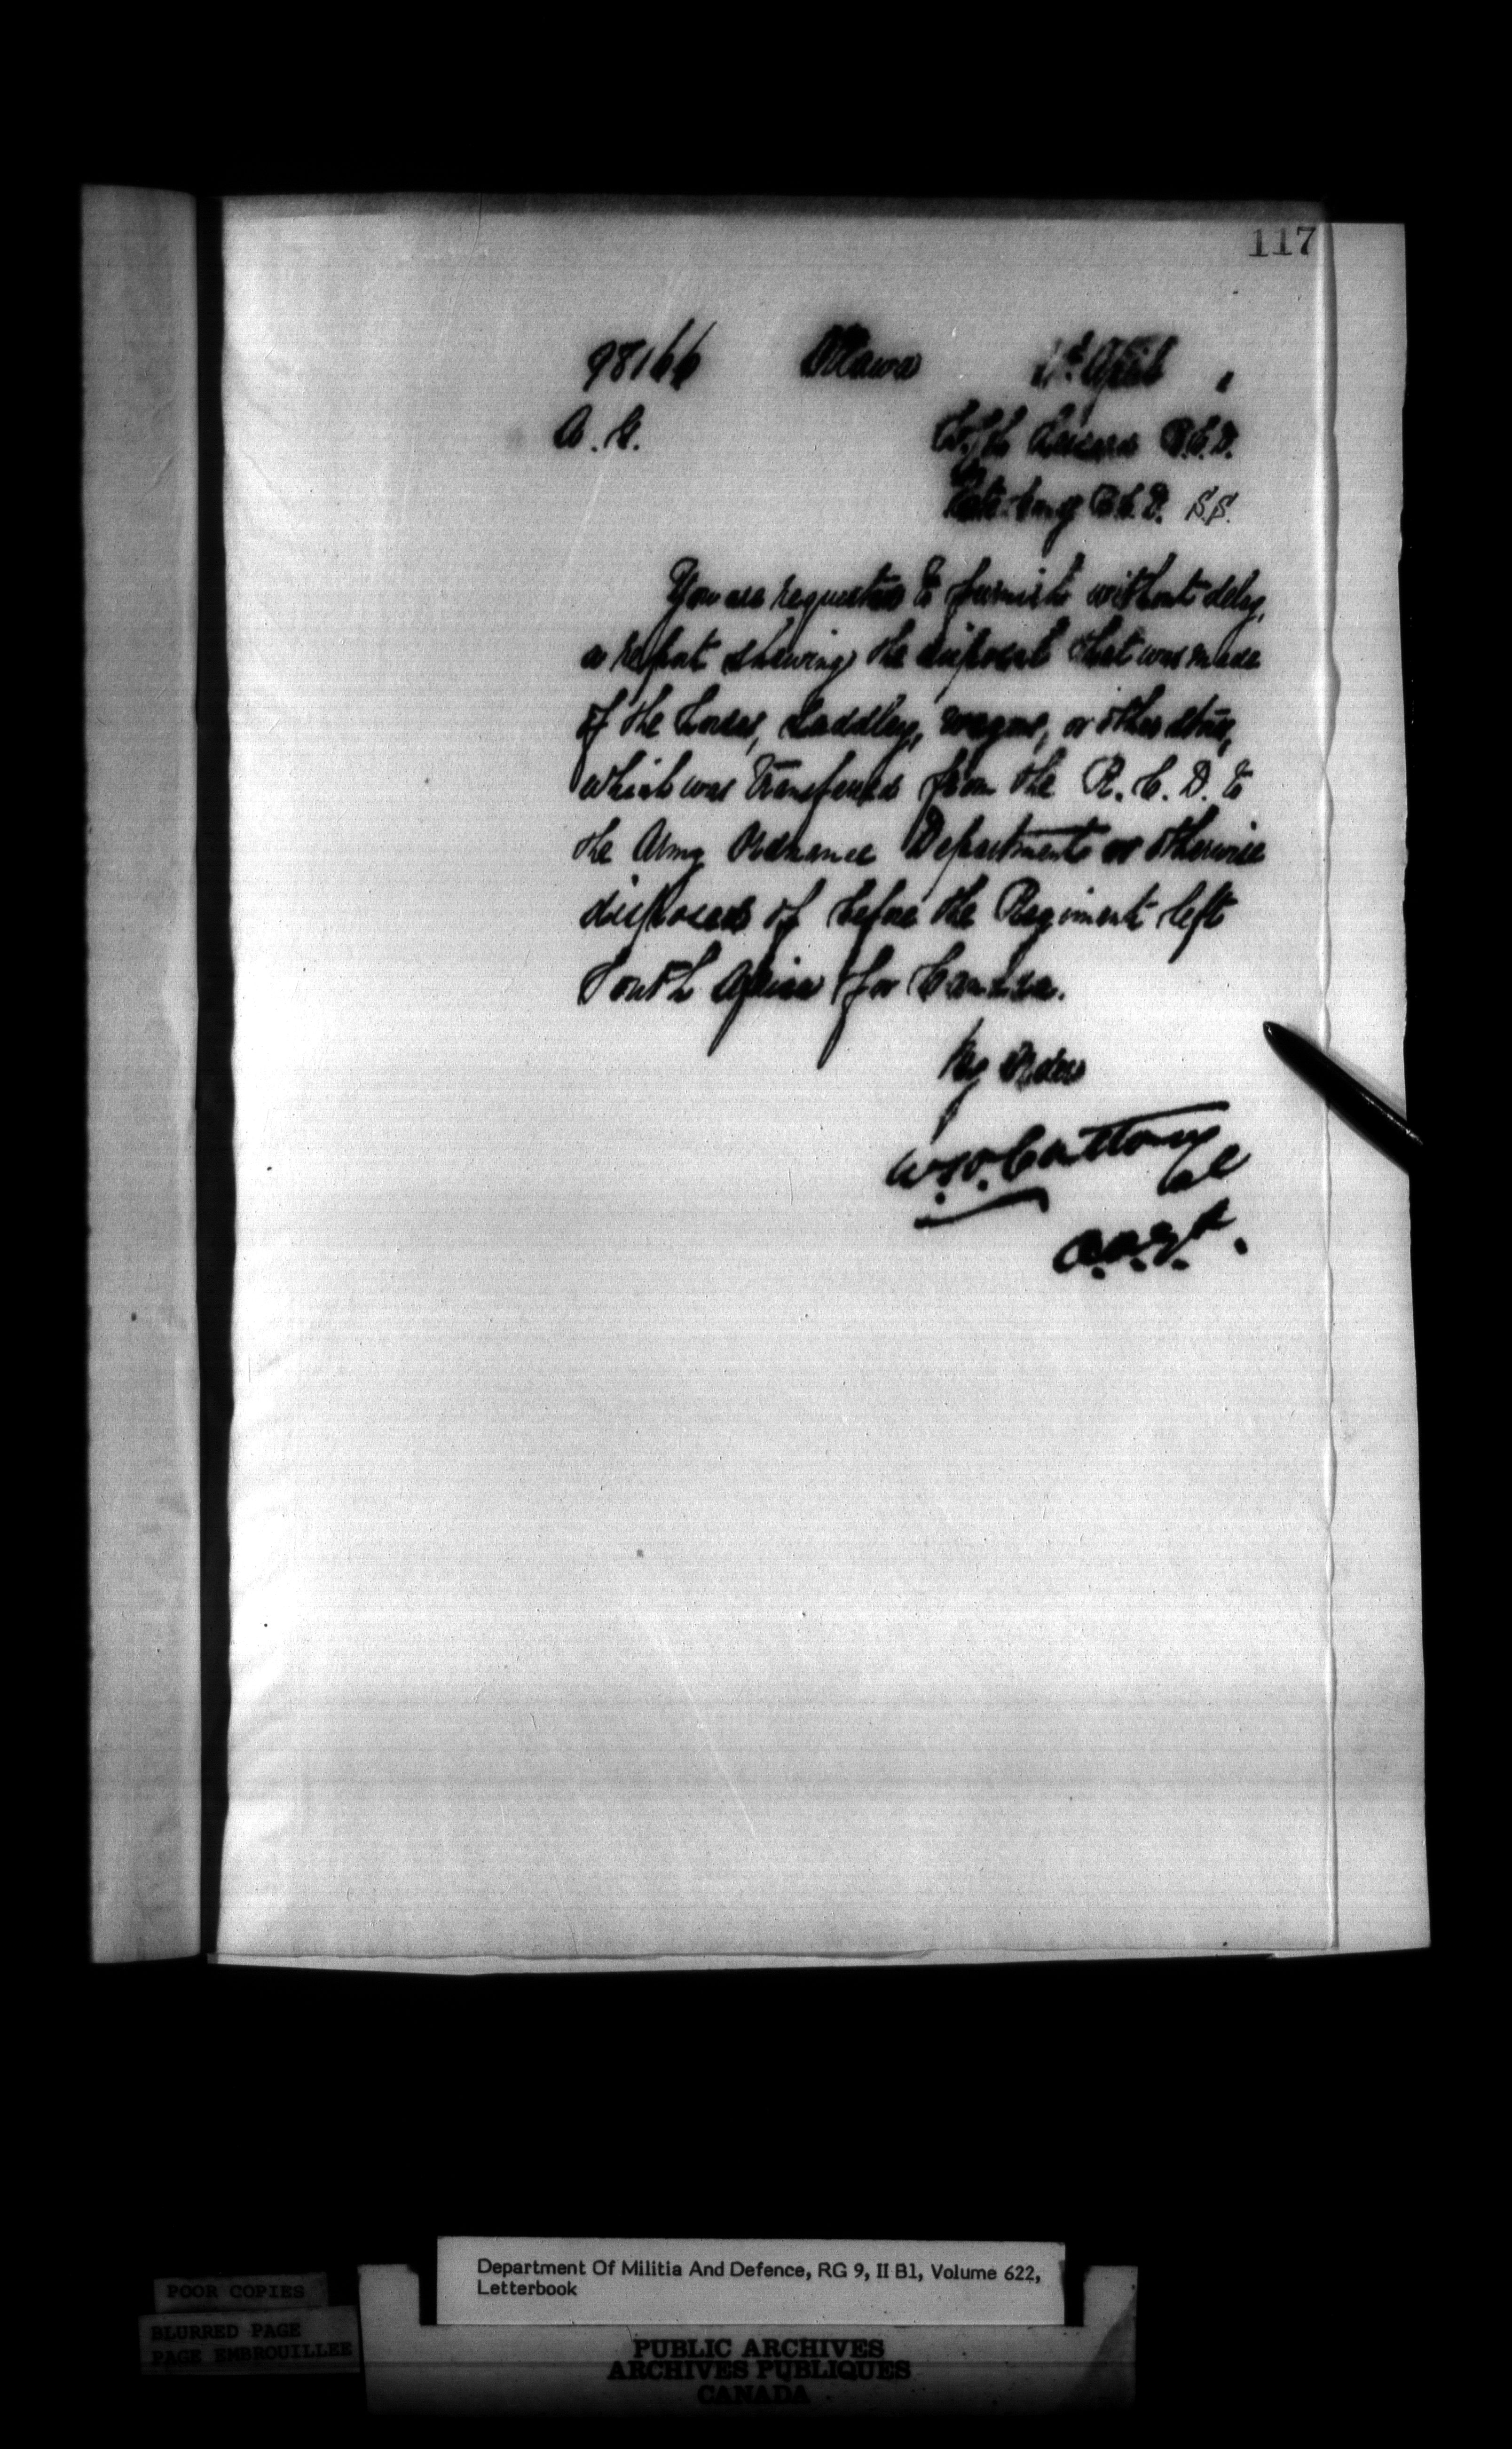 117
98166 Ottawa 1st April 1
A. G.
R.C.D.
R.C.D. S.S.
You are requested to furnish without delay,
a report shewing the disposal that was made
of the horses, saddlery, wagons, or other stores,
which was transferred from the R. C. D. to
the Army Ordnance Department or otherwise
disposed of before the Regiment left
South Africa for Canada.
By Order
Col
A.A.G.
Department Of Militia And Defence, RG 9, II B1, Volume 622,
Letterbook
POOR COPIES
BLURRED PAGE
PAGE EMBROUILLEE
PUBLIC ARCHIVES
ARCHIVES PUBLIQUES
CANADA